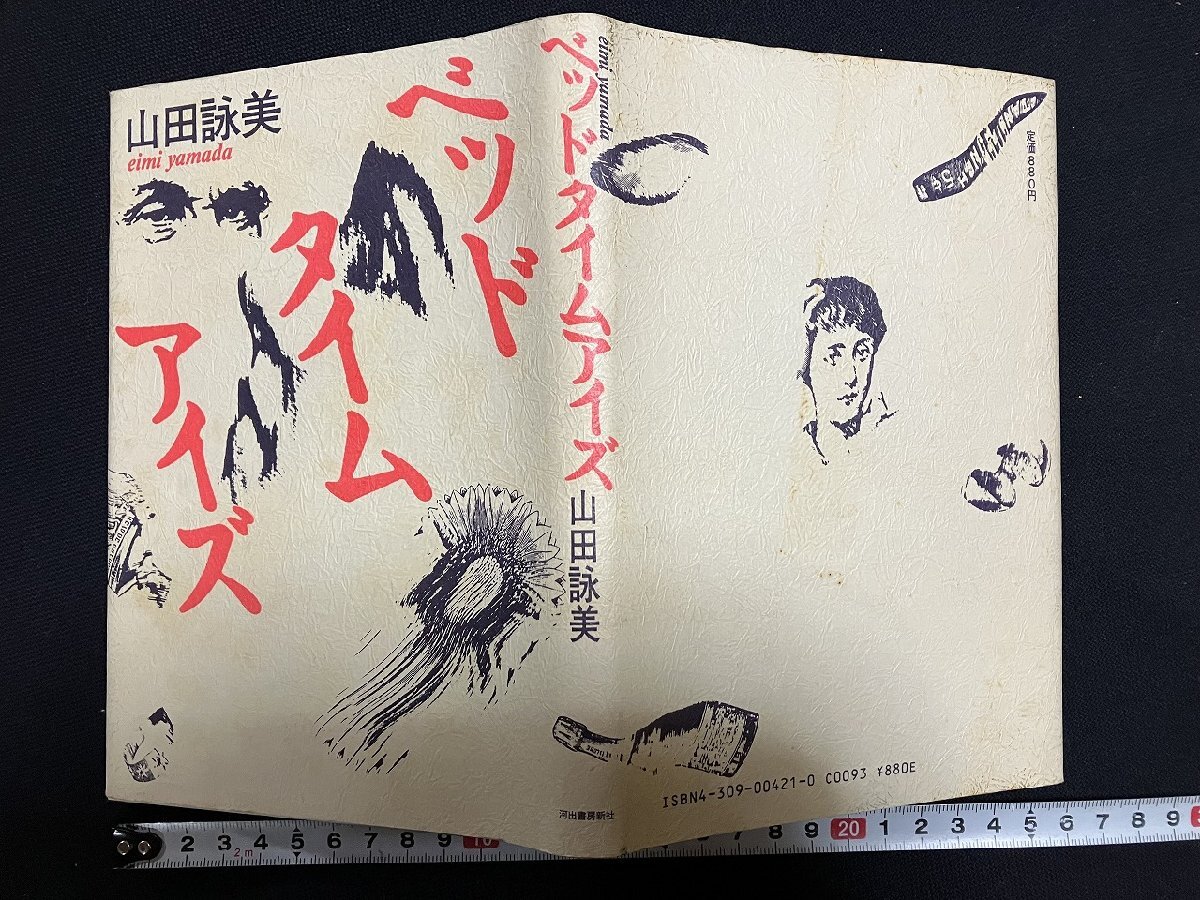 山田詠美
eimi yamada
ベッド
タイム
アイズ
eimi yamada
ベッドタイムアイズ
山田詠美
河出書房新社
定価880円
ISBN4-309-00421-0 C0093 ¥880E
2 3 4 5 6 7 8 9 10
2m
8 9 20 1 2 3 4 5 6 7 8 9